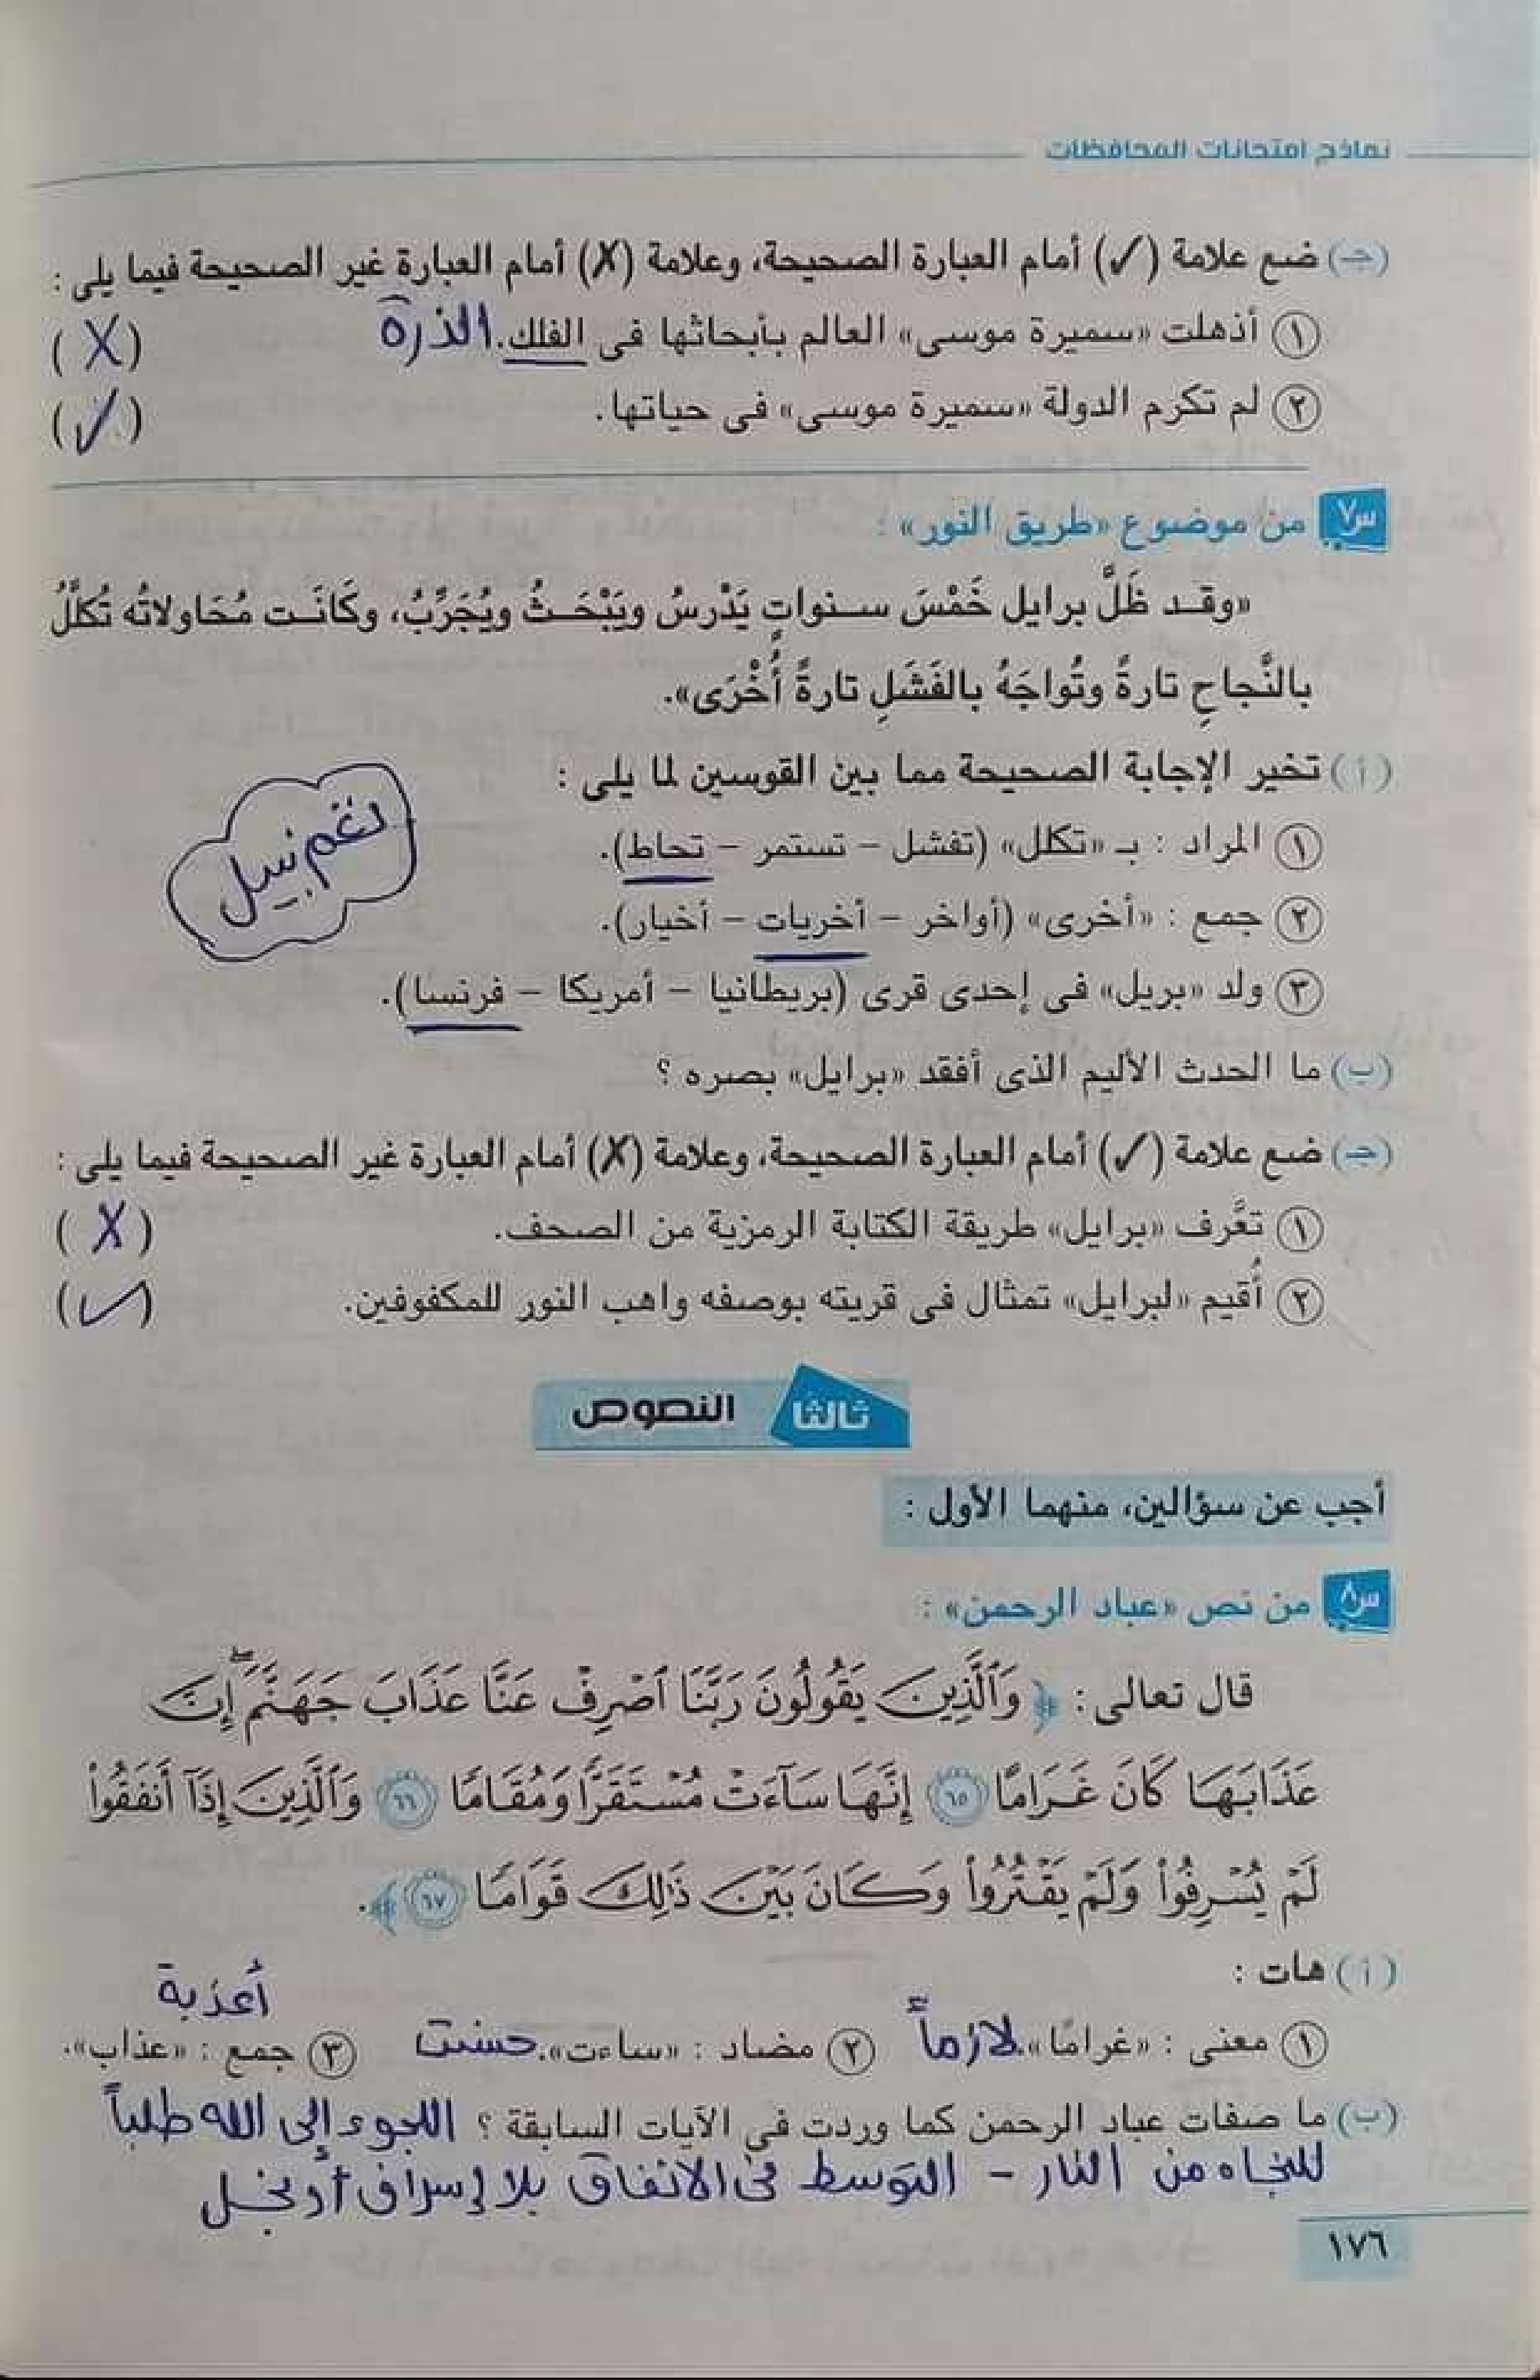 نماذج امتحانات المحافظات
(جـ) ضع علامة (✓) أمام العبارة الصحيحة، وعلامة (✗) أمام العبارة غير الصحيحة فيما يلى :
① أذهلت «سميرة موسى» العالم بأبحاثها فى الفلك. الذرة (X)
② لم تكرم الدولة «سميرة موسى» فى حياتها. (✓)
س٧ من موضوع «طريق النور» :
«وقد ظَلَّ برايل خَمْسَ سنواتٍ يَدْرسُ ويَبْحَثُ ويُجَرِّبُ، وكَانَت مُحَاولاتُه تُكلَّلُ
بالنَّجاحِ تارةً وتُواجَهُ بالفَشَلِ تارةً أُخْرَى».
(أ) تخير الإجابة الصحيحة مما بين القوسين لما يلى :
① المراد : بـ «تكلل» (تفشل – تستمر – تحاط).
نغم نبيل
② جمع : «أخرى» (أواخر – أخريات – أخيار).
③ ولد «بريل» فى إحدى قرى (بريطانيا – أمريكا – فرنسا).
(ب) ما الحدث الأليم الذى أفقد «برايل» بصره ؟
(جـ) ضع علامة (✓) أمام العبارة الصحيحة، وعلامة (✗) أمام العبارة غير الصحيحة فيما يلى :
① تعَّرف «برايل» طريقة الكتابة الرمزية من الصحف. (X)
② أُقيم «لبرايل» تمثال فى قريته بوصفه واهب النور للمكفوفين. (✓)
ثالثا النصوص
أجب عن سؤالين، منهما الأول :
س٨ من نص «عباد الرحمن» :
قال تعالى : ﴿ وَٱلَّذِينَ يَقُولُونَ رَبَّنَا ٱصْرِفْ عَنَّا عَذَابَ جَهَنَّمَ ۖ إِنَّ
عَذَابَهَا كَانَ غَرَامًا ٦٥ إِنَّهَا سَآءَتْ مُسْتَقَرًّا وَمُقَامًا ٦٦ وَٱلَّذِينَ إِذَآ أَنفَقُوا۟
لَمْ يُسْرِفُوا۟ وَلَمْ يَقْتُرُوا۟ وَكَانَ بَيْنَ ذَٰلِكَ قَوَامًا ٦٧ ﴾.
(أ) هات :
أعذبة
① معنى : «غرامًا». لازماً ② مضاد : «ساءت». حسنت ③ جمع : «عذاب».
(ب) ما صفات عباد الرحمن كما وردت فى الآيات السابقة ؟ اللجوء إلى الله طلباً
للنجاه من النار – التوسط فى الانفاق بلا إسراف أو بخل
١٧٦